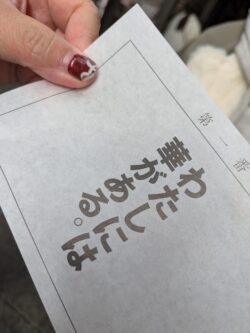 第一番
わたしには
華がある。